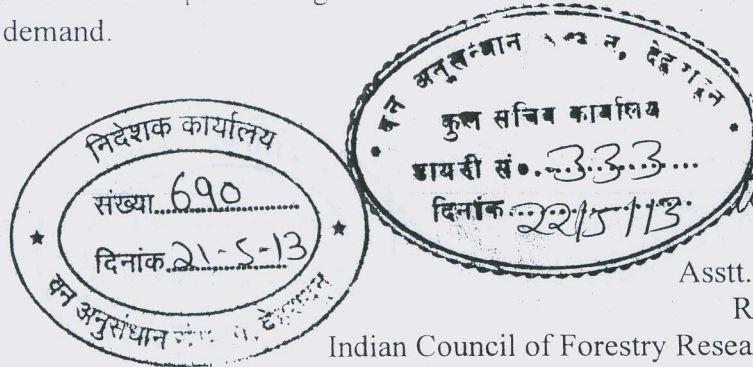 demand.
निदेशक कार्यालय
संख्या 690
दिनांक 21-5-13
वन अनुसंधान
वन अनुसन्धान
कुल सचिव कार्यालय
डायरी सं०. 333
दिनांक 22/5/13
Asstt.
R
Indian Council of Forestry Resea